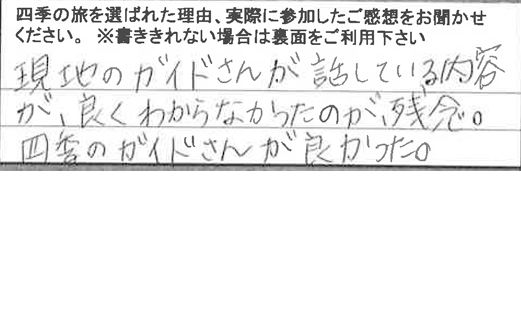 四季の旅を選ばれた理由、実際に参加したご感想をお聞かせ
ください。 ※書ききれない場合は裏面をご利用下さい
現地のガイドさんが話している内容
が、良くわからなかったのが、残念。
四季のガイドさんが良かった。